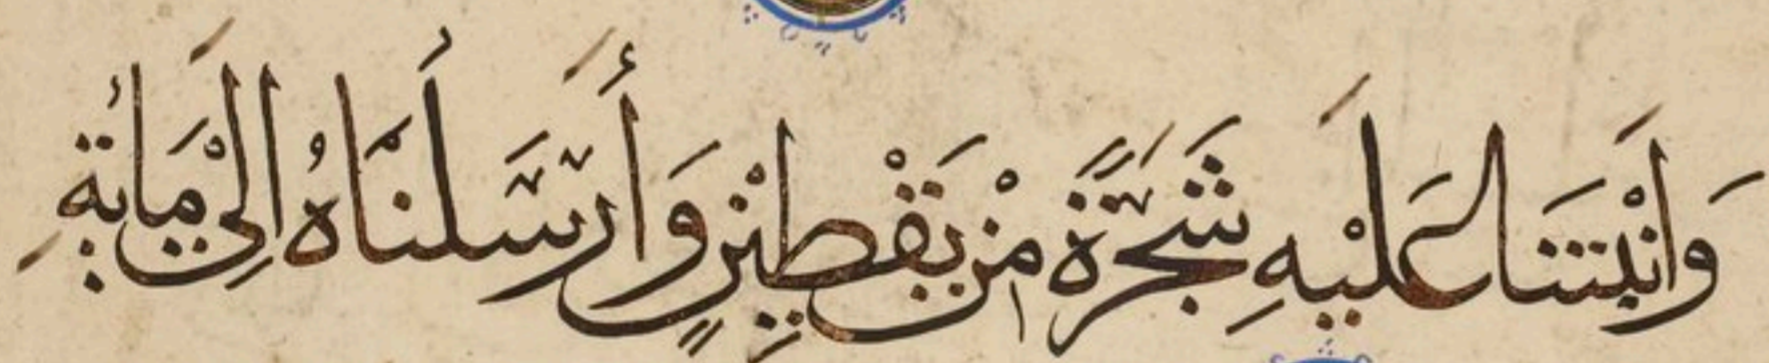 وَأَنْبَتْنَا عَلَيْهِ شَجَرَةً مِنْ يَقْطِينٍ وَأَرْسَلْنَاهُ إِلَى مِائَةِ